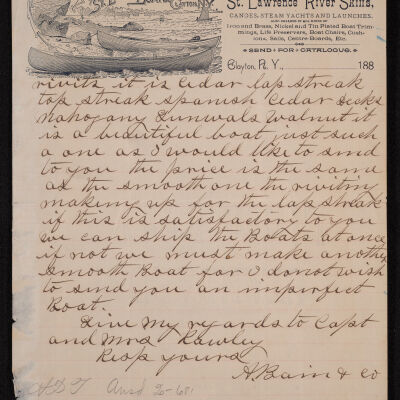 Clayton, N.Y.
St. Lawrence River Skiffs,
CANOES, STEAM YACHTS AND LAUNCHES.
Iron and Brass, Nickel and Tin Plated Boat Trim-
mings, Life Preservers, Boat Chairs, Cush-
ions, Sails, Centre-Boards, Etc.
SEND FOR CATALOGUE.
Clayton, N. Y., 188
rivits it is Cedar lap streak
top streak spanish Cedar Decks
Mahogany Gunwals walnut it
is a beautiful boat just such
a one as I would like to send
to you the price is the same
as the smooth one the riviting
making up for the lap streak
if this is satisfactory to you
we can ship the Boats at once
if not we must make another
smooth Boat for I do not wish
to send you an imperfect
Boat.
Give my regards to Capt
and Mrs Rawley
Resp yours
A Bain & Co
Ansd